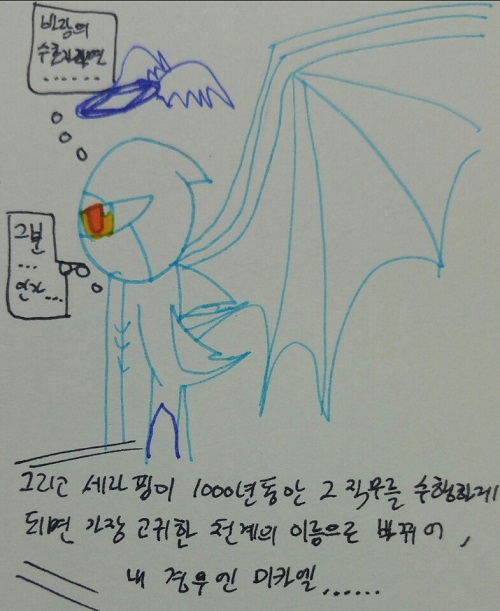 바람의
수호자라면
.......
그분
...
인가...
그리고 세라핌이 1000년동안 그 직무를 수행하게
되면 가장 고귀한 천계의 이름으로 바뀌어,
내 경우엔 미카엘,......